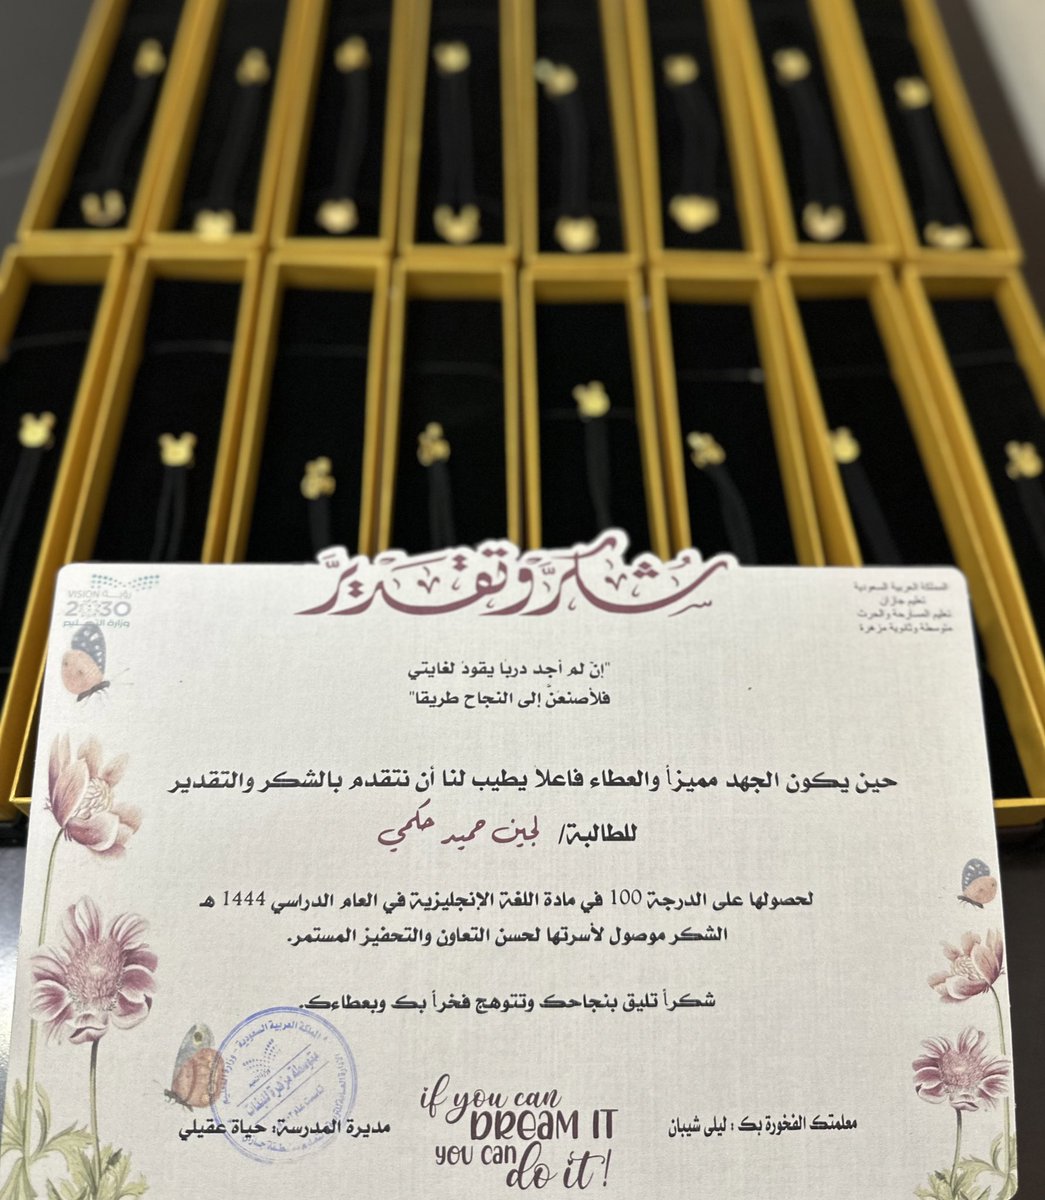 شكر وتقدير
VISION رؤية
2030
وزارة التعليم
المملكة العربية السعودية
تعليم جازان
تعليم الصارحة والحرث
متوسطة وثانوية مزهرة
"إنّ لم أجد دربًا يقودُ لغايتي
فلأصنعَنَّ إلى النجاح طريقا"
حين يكون الجهد مميزاً والعطاء فاعلاً يطيب لنا أن نتقدم بالشكر والتقدير
للطالبة/ لجين حميد حكمي
لحصولها على الدرجة 100 في مادة اللغة الإنجليزية في العام الدراسي 1444 هـ
الشكر موصول لأسرتها لحسن التعاون والتحفيز المستمر.
شكراً تليق بنجاحك وتتوهج فخراً بك وبعطاءك.
المملكة العربية السعودية - وزارة
متوسطة مزهرة للبنات
معلمتك الفخورة بك : ليلى شيبان
if you can
DREAM IT
you can
do it!
مديرة المدرسة: حياة عقيلي